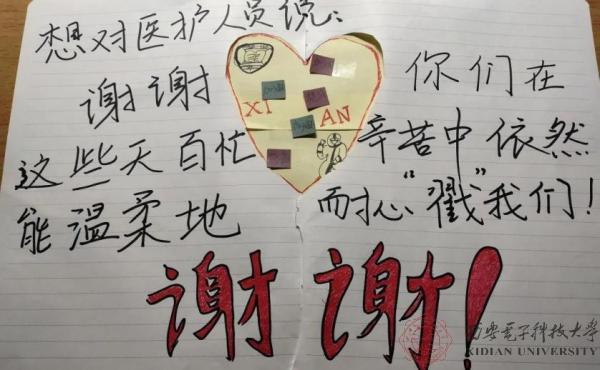 想对医护人员说：
谢谢 你们在
XI AN
这些天百忙 辛苦中依然
能温柔地 耐心“戳”我们！
谢谢！
西安电子科技大学
XIDIAN UNIVERSITY